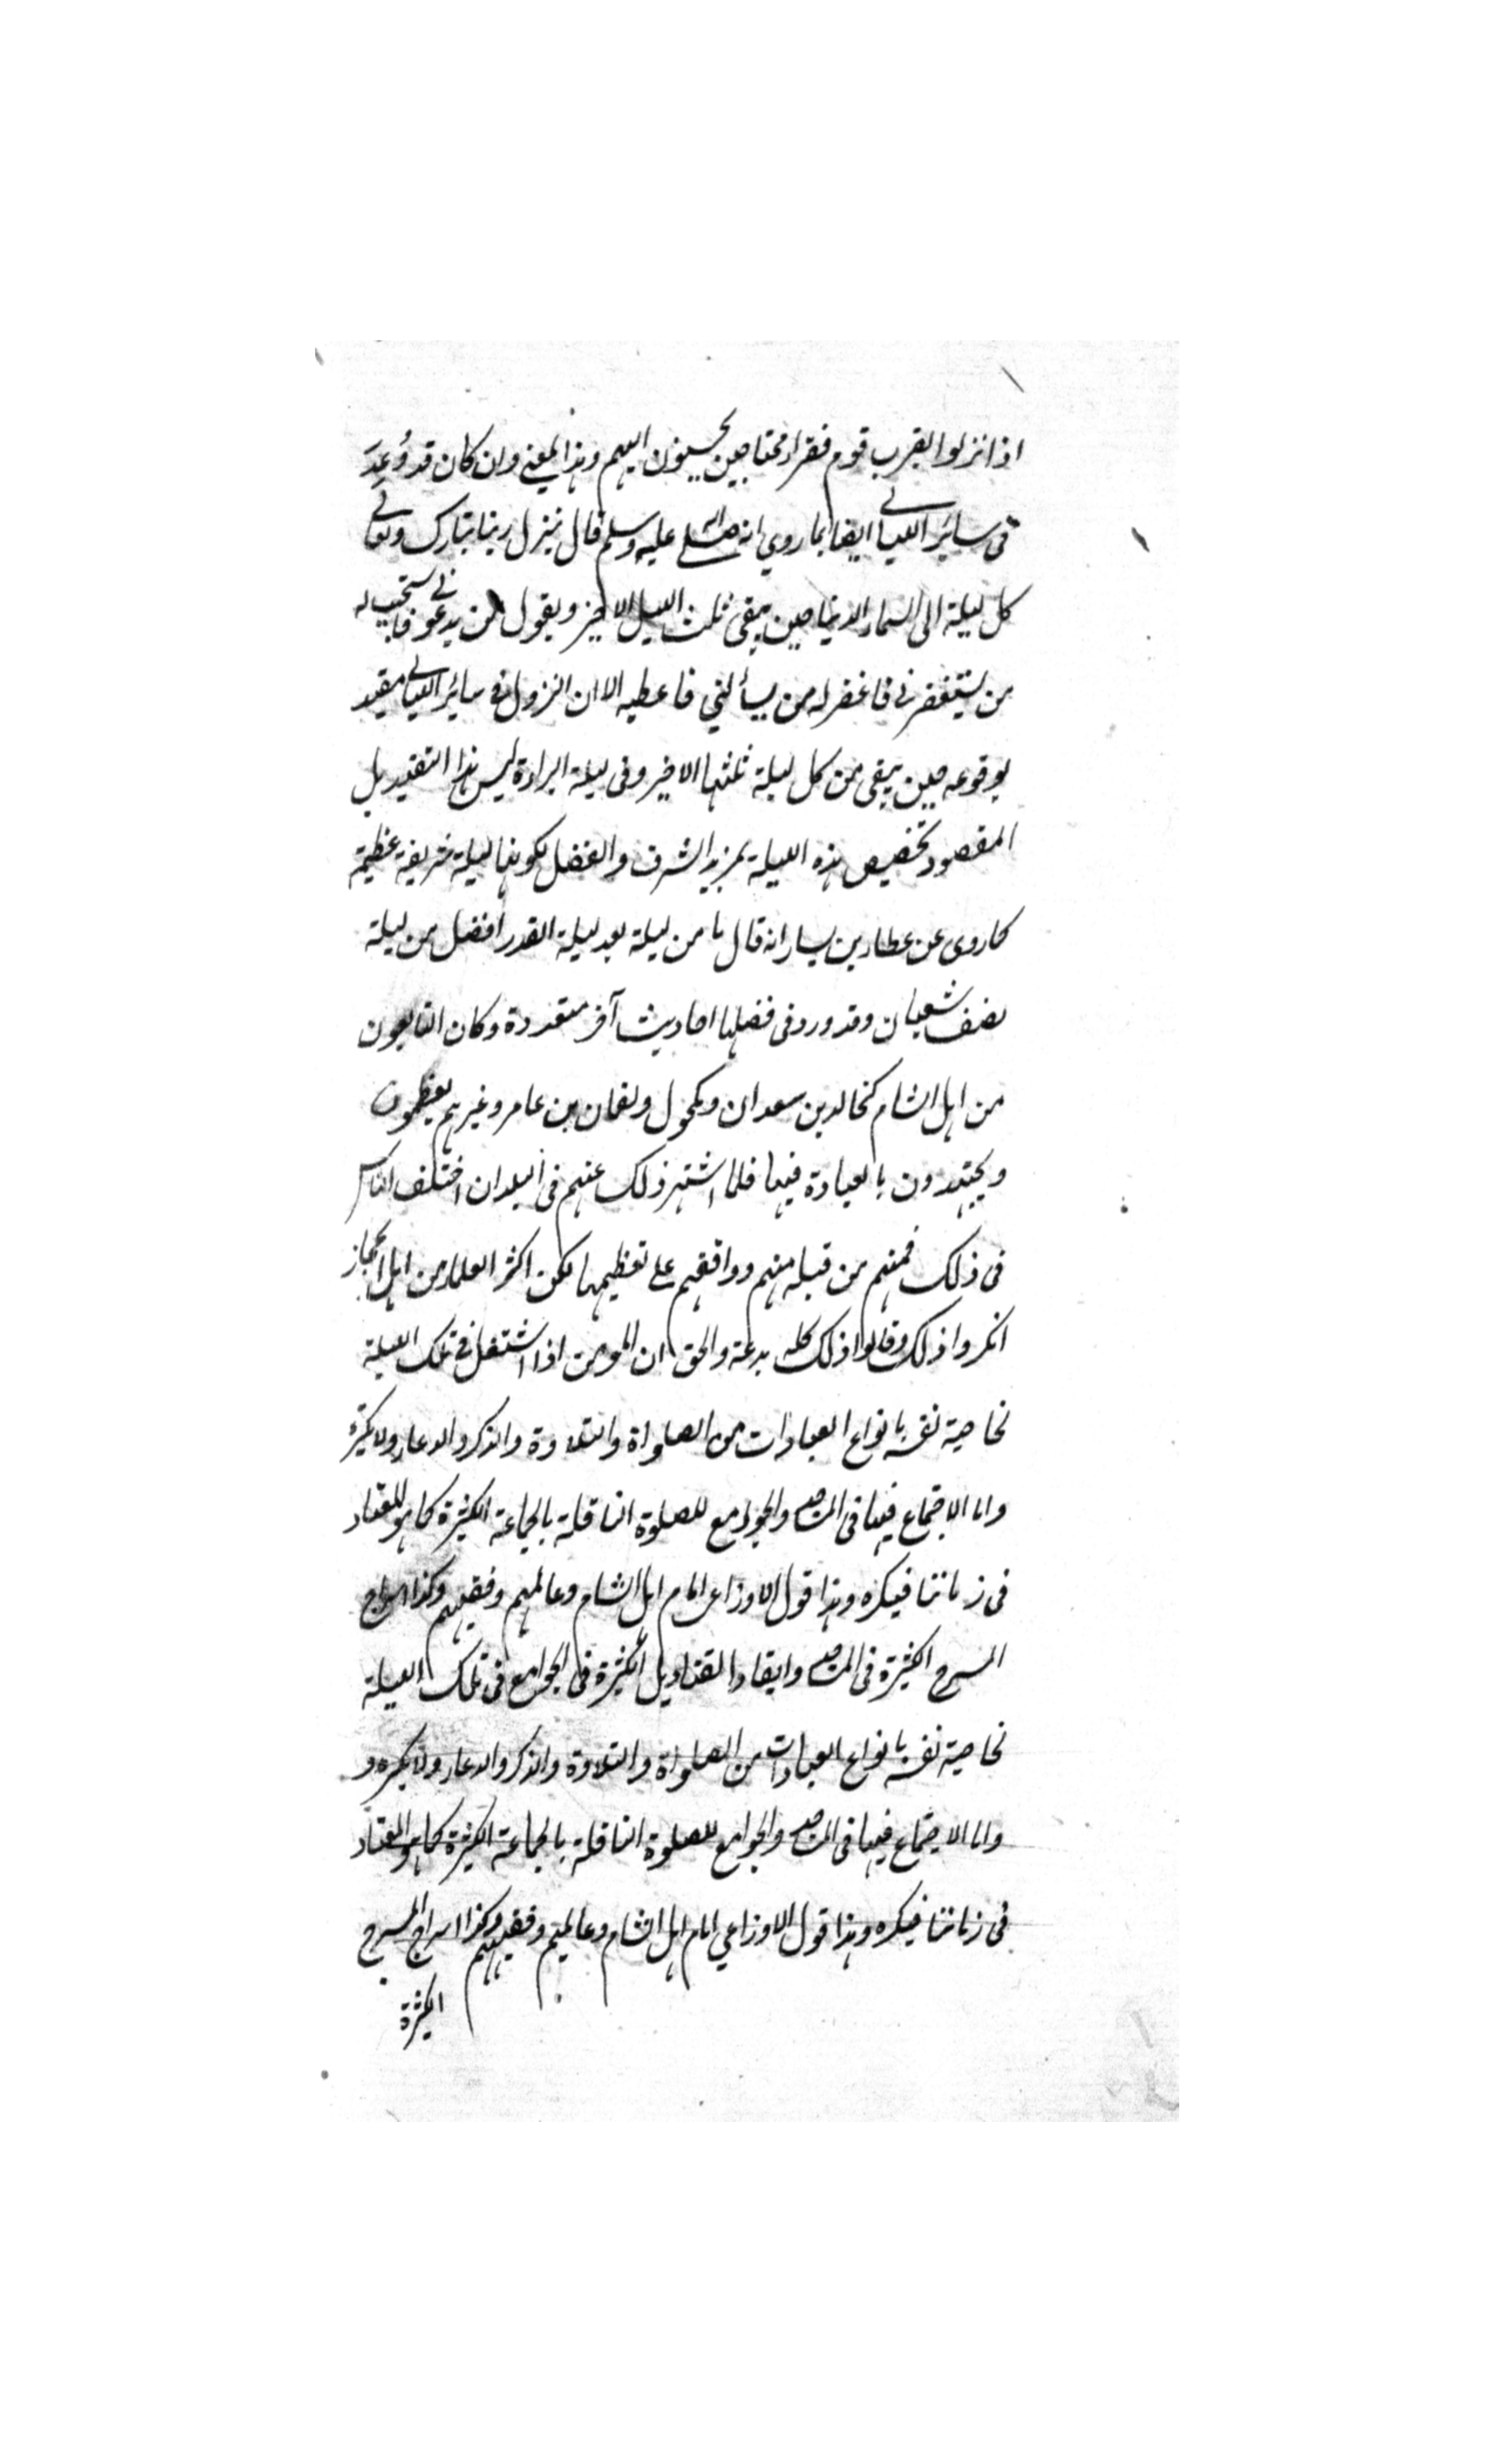 اذا نزلوا بقرب قوم فقراء محتاجين يحسنون اليهم وهذا المعنى وان كان قد وُجِدَ
فى سائر الليالى ايضا بما روي انه صلى الله عليه وسلم قال ينزل ربنا تبارك وتعالى
كل ليلة الى السماء الدنيا حين يبقى ثلث الليل الاخير ويقول من يدعونى فاستجيب له
من يستغفرنى فاغفر له من يسألني فاعطيه الا ان النزول فى سائر الليالى مقيد
بوقوعه حين يبقى من كل ليلة ثلثها الاخير وفى ليلة البراءة ليس هذا التقييد بل
المقصود تخصيص هذه الليلة بمزيد الشرف والفضل لكونها ليلة شريفة عظيمة
كما روى عن عطاء بن يسار انه قال ما من ليلة بعد ليلة القدر افضل من ليلة
نصف شعبان وقد ورد فى فضلها احاديث آخر متعددة وكان التابعون
من اهل الشام كخالد بن سعدان ومكحول ولقمان بن عامر وغيرهم يعظمون
ويجتهدون بالعبادة فيها فلما اشتهر ذلك عنهم فى البلدان اختلف الناس
فى ذلك فمنهم من قبله منهم ووافقهم على تعظيمها لكن اكثر العلماء من اهل الحجاز
انكروا ذلك وقالوا ذلك كله بدعة والحق ان المؤمن اذا اشتغل فى تلك الليلة
بخاصية نفسه بانواع العبادات من الصلواة والتلاوة والذكر والدعاء ولا يكره
واما الاجتماع فيها فى المساجد والجوامع للصلوة النافلة بالجماعة الكثيرة كما هو المعتاد
فى زماننا فيكره وهذا قول الاوزاعى امام اهل الشام وعالمهم وفقيههم وكذا اسراج
السرج الكثيرة فى المساجد وايقاد القناديل الكثيرة فى الجوامع فى تلك الليلة
بخاصية نفسه بانواع العبادات من الصلواة والتلاوة والذكر والدعاء ولا يكره و
واما الاجتماع فيها فى المساجد والجوامع للصلوة النافلة بالجماعة الكثيرة كما هو المعتاد
فى زماننا فيكره وهذا قول الاوزاعي امام اهل الشام وعالمهم وفقيههم وكذا اسراج السرج
الكثيرة